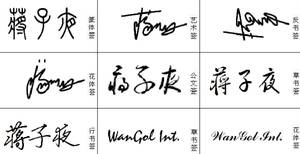 蒋子夜 篆体签
艺术签
反书签
花体签
蒋子夜 公文签
蒋子夜 草书签
蒋子夜 行书签
WanGol Int. 草书签
WanGol Int. 花体签